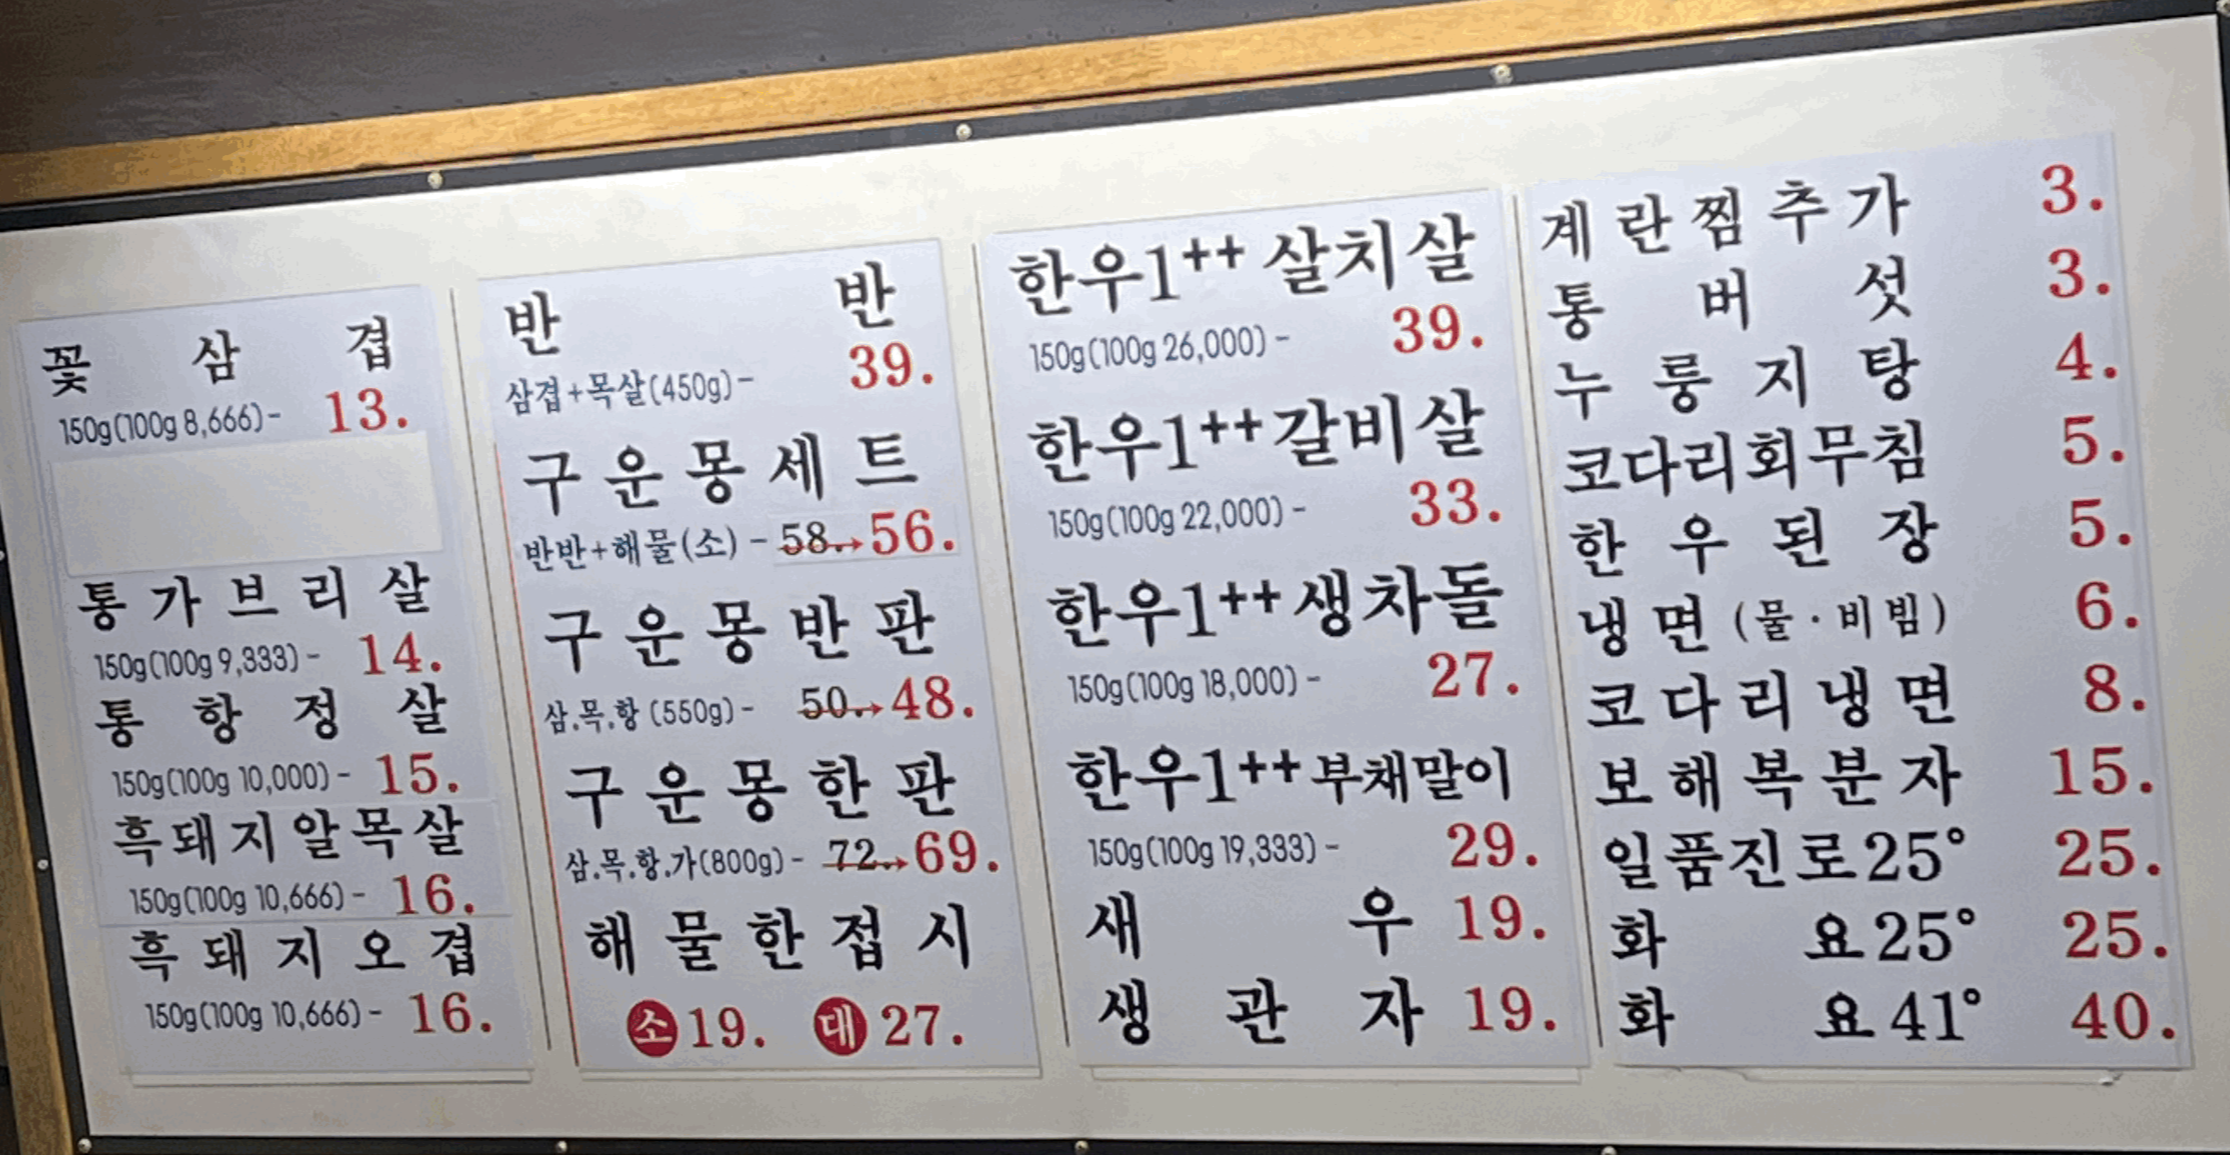 꽃삼겹
150g(100g 8,666)- 13.
통가브리살
150g(100g 9,333)- 14.
통항정살
150g(100g 10,000)- 15.
흑돼지알목살
150g(100g 10,666)- 16.
흑돼지오겹
150g(100g 10,666)- 16.
반반
삼겹+목살(450g)- 39.
구운몽세트
반반+해물(소)- 58.→56.
구운몽반판
삼.목.항(550g)- 50.→48.
구운몽한판
삼.목.항.가(800g)- 72.→69.
해물한접시
소 19. 대 27.
한우1++살치살
150g(100g 26,000)- 39.
한우1++갈비살
150g(100g 22,000)- 33.
한우1++생차돌
150g(100g 18,000)- 27.
한우1++부채말이
150g(100g 19,333)- 29.
새우 19.
생관자 19.
계란찜추가 3.
통버섯 3.
누룽지탕 4.
코다리회무침 5.
한우된장 5.
냉면(물·비빔) 6.
코다리냉면 8.
보해복분자 15.
일품진로25° 25.
화요25° 25.
화요41° 40.